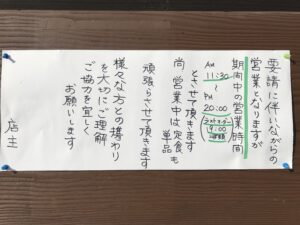 要請に伴いながらの
営業となりますが
期間中の営業時間
AM
11:30
~
PM
20:00
ラストオーダー
19:00
とさせて頂きます
尚 営業中は定食も
単品
頑張らさせて頂きます
様々な方との携わり
を大切にご理解
ご協力を宜しく
お願いします
店主